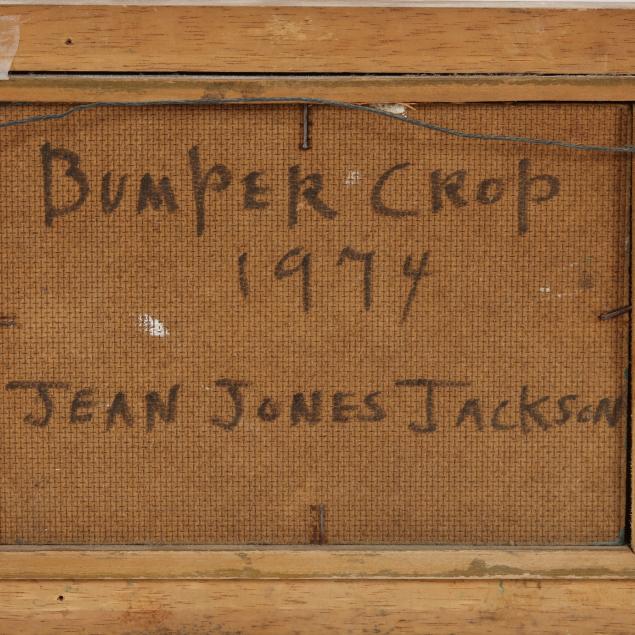 BUMPER CROP
1974
JEAN JONES JACKSON